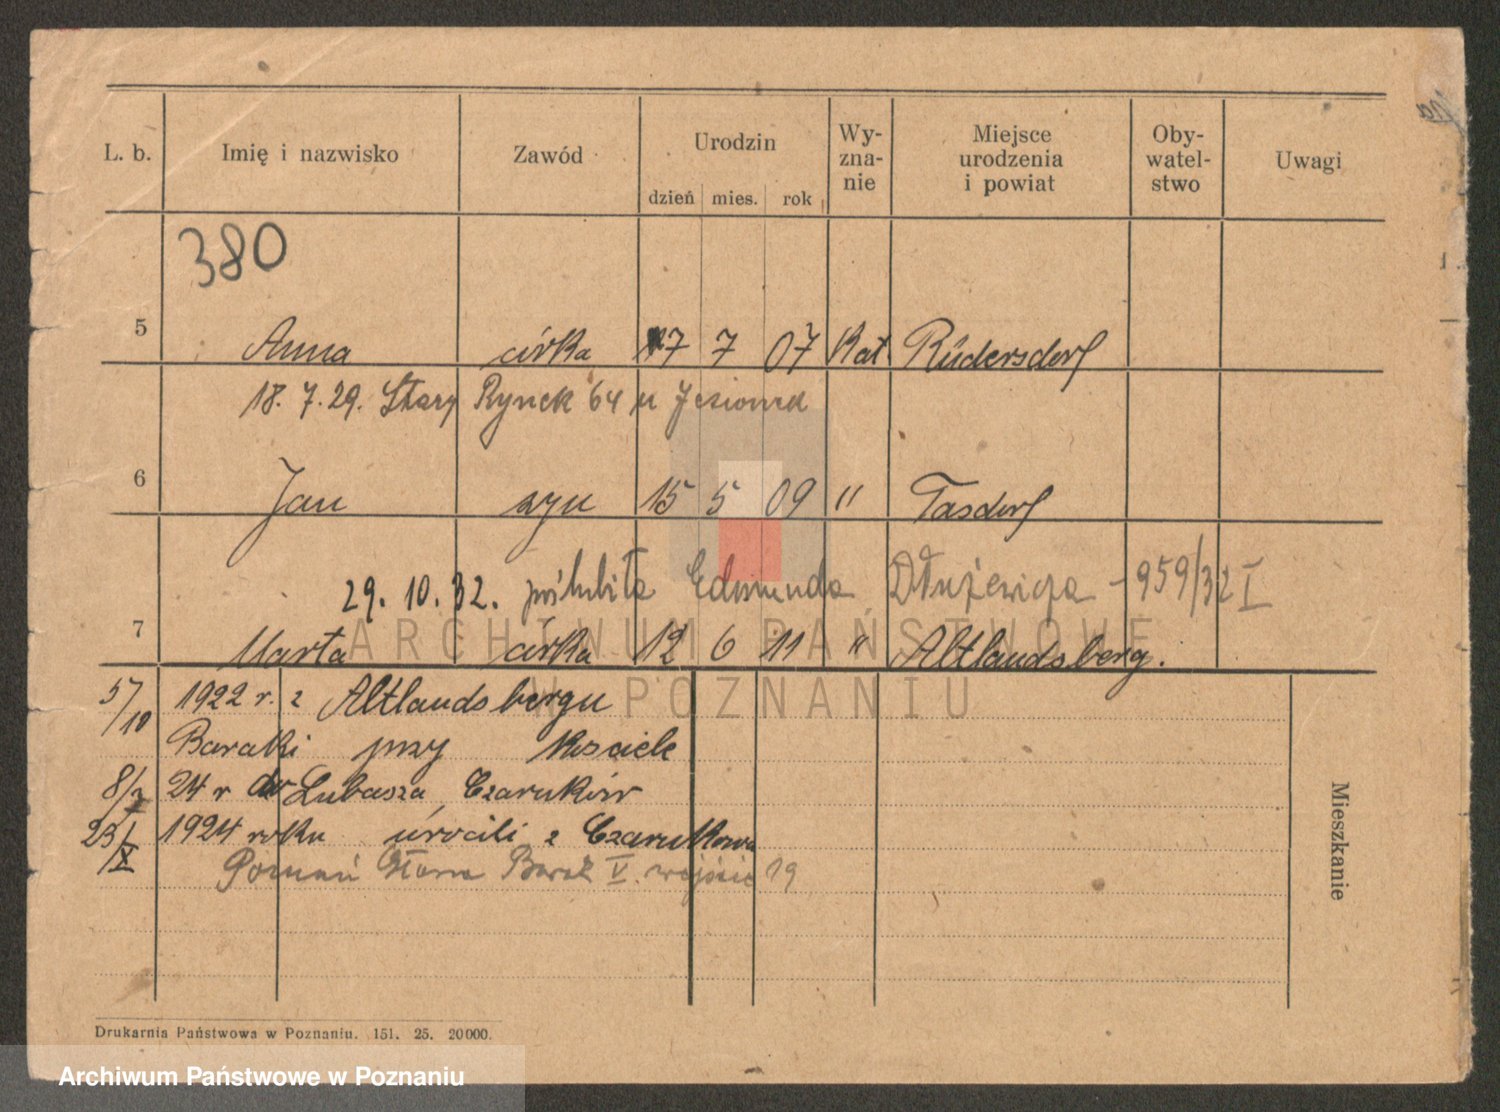 L. b. Imię i nazwisko Zawód Urodzin dzień mies. rok Wy-zna-nie Miejsce urodzenia i powiat Oby-watel-stwo Uwagi
380
5 Anna córka 17 7 07 Kat Rüdersdorf
18. 7. 29. Stary Rynek 64 u Jesionka
6 Jan syn 15 5 09 " Tasdorf
29. 10. 32. poślubiła Edmunda Dłużewicza - 959/32 I
7 Marta córka 12 6 11 " Altlandsberg.
5/10 1922 r. z Altlandsbergu
Baraki przy Kosciele
8/7 24 r do Lubasza, Czarnków
23/X 1924 roku wrócili z Czarnkowa
Poznań Barak V. wejście 19
Mieszkanie
Drukarnia Państwowa w Poznaniu. 151. 25. 20000.
ARCHIWUM PAŃSTWOWE
W POZNANIU
Archiwum Państwowe w Poznaniu